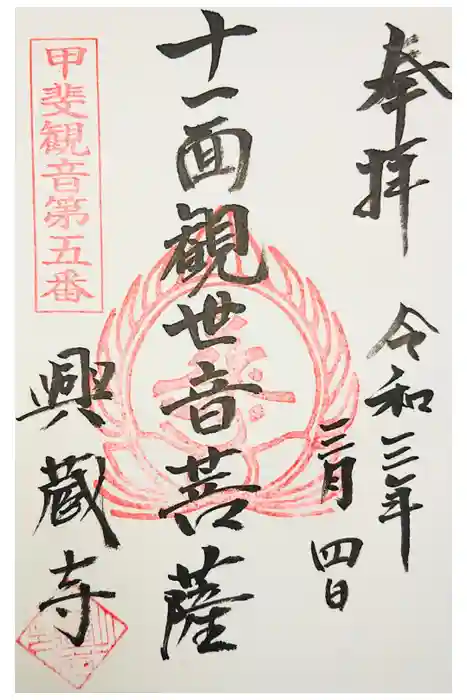 奉拝
令和三年
三月四日
十一面観世音菩薩
甲斐観音第五番
興蔵寺